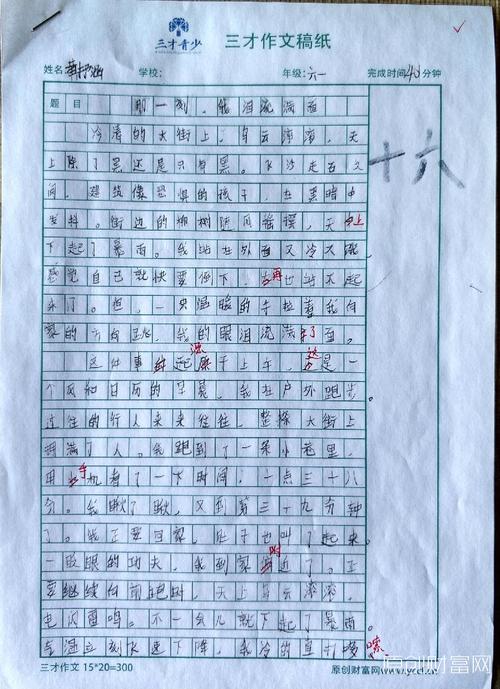 三才青少
三才作文稿纸
姓名 学校: 年级:六一 完成时间40分钟
题目 那一刻,我泪流满面
十六
冷清的大街上,乌云滚滚,天
上除了黑还是只有黑。飞沙走石之
间,建筑像恐惧的孩子,在黑暗中
发抖。街边的柳树随风摇摆,天上
下起了暴雨。我站在外面又冷又饿,
感觉自己就快要倒下,再也站不起
来了。但,一只温暖的手拉着我向
家的方向跑,我的眼泪流满了面。
这件事 起源于上午,这是一
个风和日历的早晨,我在户外跑步。
过往的行人来来往往,整条大街上
拥满了人。我跑到了一条小巷里,
用手机看了一下时间,十点三十八
分。我瞅了瞅,又到第三十九分钟
了。我正要回家,肚子也叫了起来。
一眨眼的功夫,我到家附近了。正
要继续往前跑时,天上乌云滚滚,
电闪雷鸣。不一会儿就下起了暴雨。
气温立刻飞速下降,我冷的直打哆嗦
三才作文 15*20=300
原创财富网 www.yccf.cn